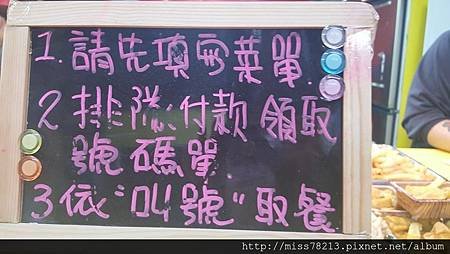 1.請先填寫菜單.
2排隊付款領取
號碼單.
3依"叫號"取餐
http://miss78213.pixnet.net/album